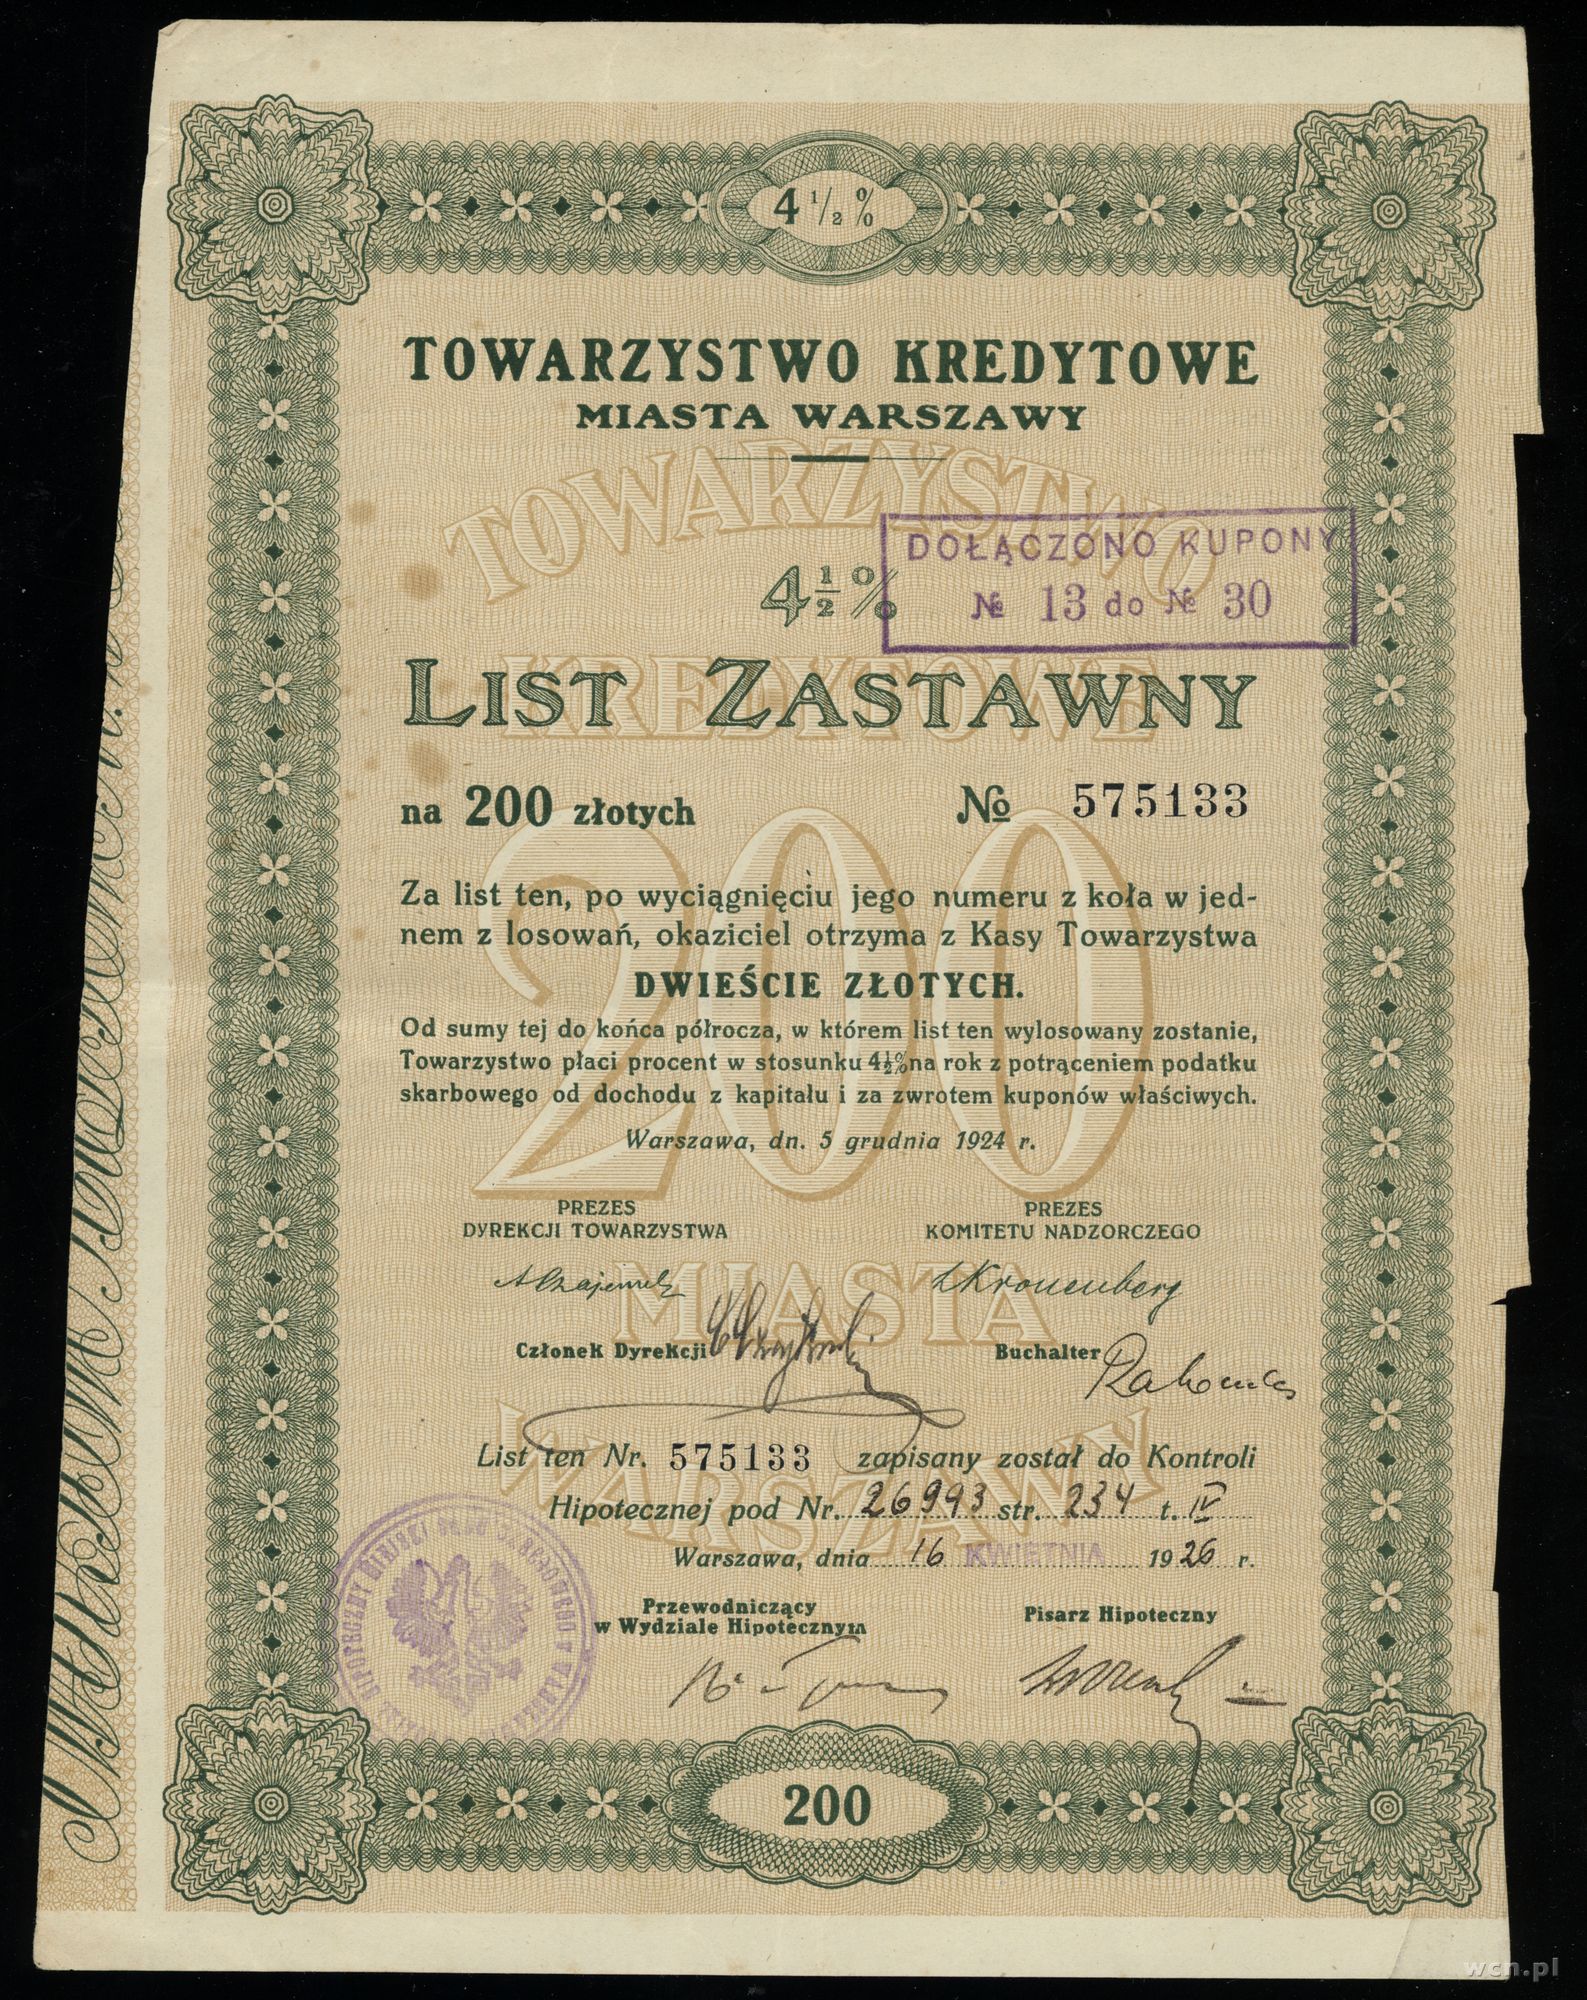 4 1/2 %
TOWARZYSTWO KREDYTOWE
MIASTA WARSZAWY
TOWARZYSTWO
DOŁĄCZONO KUPONY
№ 13 do № 30
4 1/2 %
KREDYTOWE
LIST ZASTAWNY
na 200 złotych № 575133
200
Za list ten, po wyciągnięciu jego numeru z koła w jed-
nem z losowań, okaziciel otrzyma z Kasy Towarzystwa
DWIEŚCIE ZŁOTYCH.
Od sumy tej do końca półrocza, w którem list ten wylosowany zostanie,
Towarzystwo płaci procent w stosunku 4½% na rok z potrąceniem podatku
skarbowego od dochodu z kapitału i za zwrotem kuponów właściwych.
Warszawa, dn. 5 grudnia 1924 r.
PREZES PREZES
DYREKCJI TOWARZYSTWA KOMITETU NADZORCZEGO
LKronenberg
MIASTA
Członek Dyrekcji Buchalter
WARSZAWY
List ten Nr. 575133 zapisany został do Kontroli
Hipotecznej pod Nr. 26993 str. 234 t. IV
Warszawa, dnia 16 KWIETNIA 1926 r.
Przewodniczący Pisarz Hipoteczny
w Wydziale Hipotecznym
200
wcn.pl